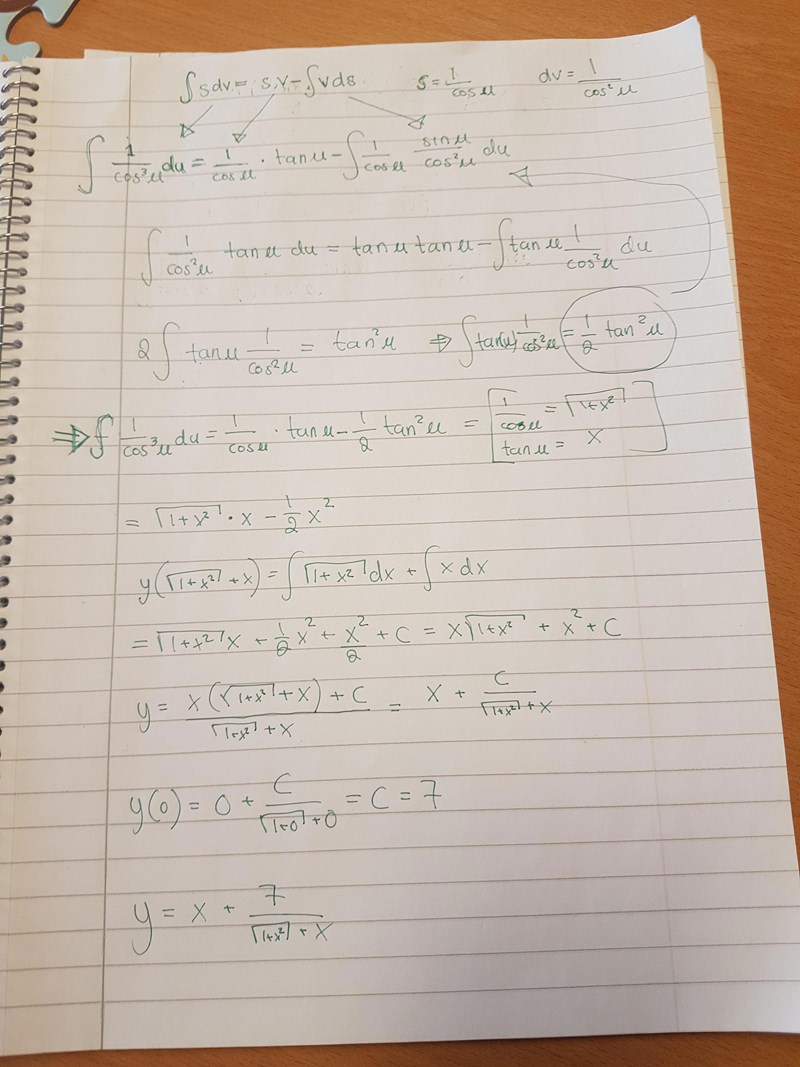 ∫s dv = s.v - ∫v ds   s = 1/cos u   dv = 1/cos²u
∫ 1/cos³u du = 1/cos u · tan u - ∫ 1/cos u sin u/cos²u du
∫ 1/cos²u tan u du = tan u tan u - ∫ tan u 1/cos²u du
2 ∫ tan u 1/cos²u = tan²u ⇒ ∫ tan(u) 1/cos²u = 1/2 tan²u
⇒ ∫ 1/cos³u du = 1/cos u · tan u - 1/2 tan²u = [1/cos u = √(1+x²)
tan u = x]
= √(1+x²) · x - 1/2 x²
y(√(1+x²) + x) = ∫√(1+x²) dx + ∫x dx
= √(1+x²) x + 1/2 x² + x²/2 + C = x√(1+x²) + x² + C
y = (x(√(1+x²) + x) + C)/(√(1+x²) + x) = x + C/(√(1+x²) + x)
y(0) = 0 + C/(√(1+0) + 0) = C = 7
y = x + 7/(√(1+x²) + x)